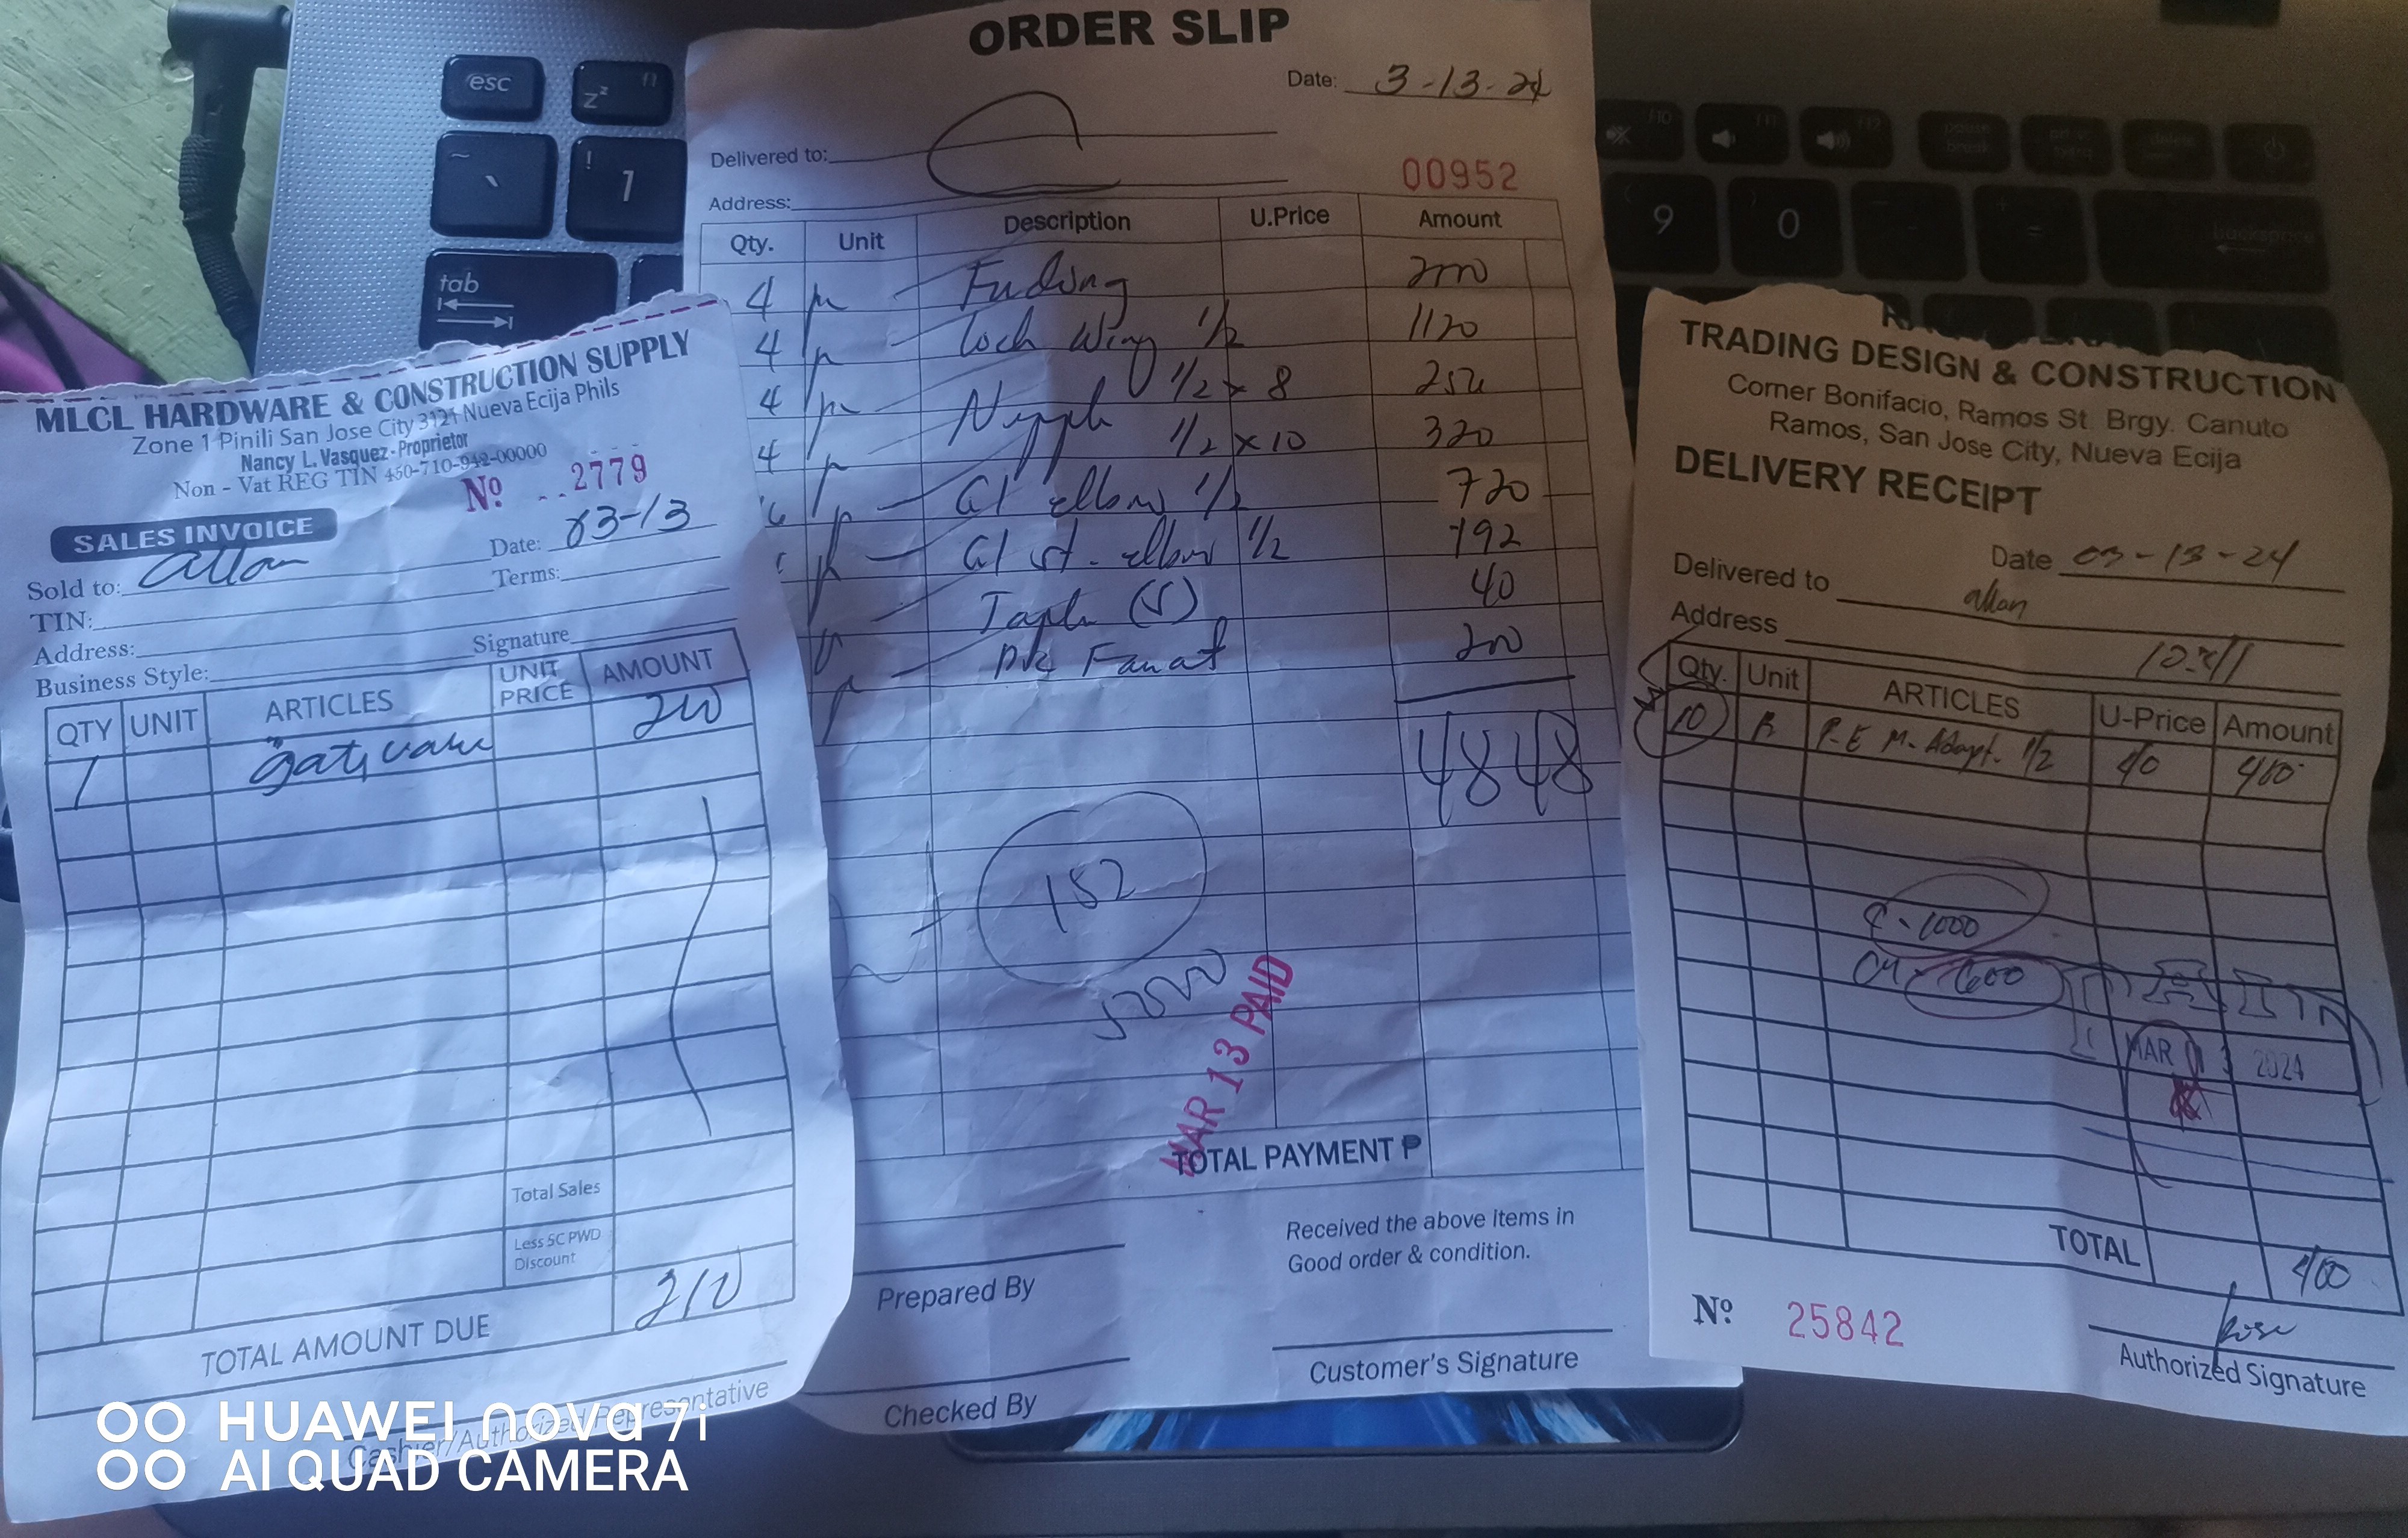 MLCL HARDWARE & CONSTRUCTION SUPPLY
Zone 1 Pinili San Jose City 3121 Nueva Ecija Phils
Nancy L. Vasquez - Proprietor
Non - Vat REG TIN 450-710-942-00000
Nº 2779
SALES INVOICE
Date: 03-13
Sold to: allan
Terms:
TIN:
Address:
Signature
Business Style:
QTY UNIT ARTICLES UNIT PRICE AMOUNT
1 gate valve 210
Total Sales
Less SC PWD
Discount
TOTAL AMOUNT DUE 210
Cashier/Authorized Representative
ORDER SLIP
Date: 3-13-24
Delivered to:
00952
Address:
Qty. Unit Description U.Price Amount
4
4 1/2 1120
4 1/2 x 8
4 1/2 x 10 320
GI elbow 1/2 720
GI st. elbow 1/2 192
(S) 40
200
4848
152
5000
MAR 13 PAID
TOTAL PAYMENT P
Received the above items in
Good order & condition.
Prepared By
Customer's Signature
Checked By
TRADING DESIGN & CONSTRUCTION
Corner Bonifacio, Ramos St. Brgy. Canuto
Ramos, San Jose City, Nueva Ecija
DELIVERY RECEIPT
Date 03-13-24
Delivered to allan
Address
Qty. Unit ARTICLES U-Price Amount
10 P.E M. Adapt. 1/2 40 400
C - 1000
CH - 600
MAR 13 2024
TOTAL 400
Nº 25842
Authorized Signature
esc
tab
1
9
0
backspace
HUAWEI nova 7i
AI QUAD CAMERA